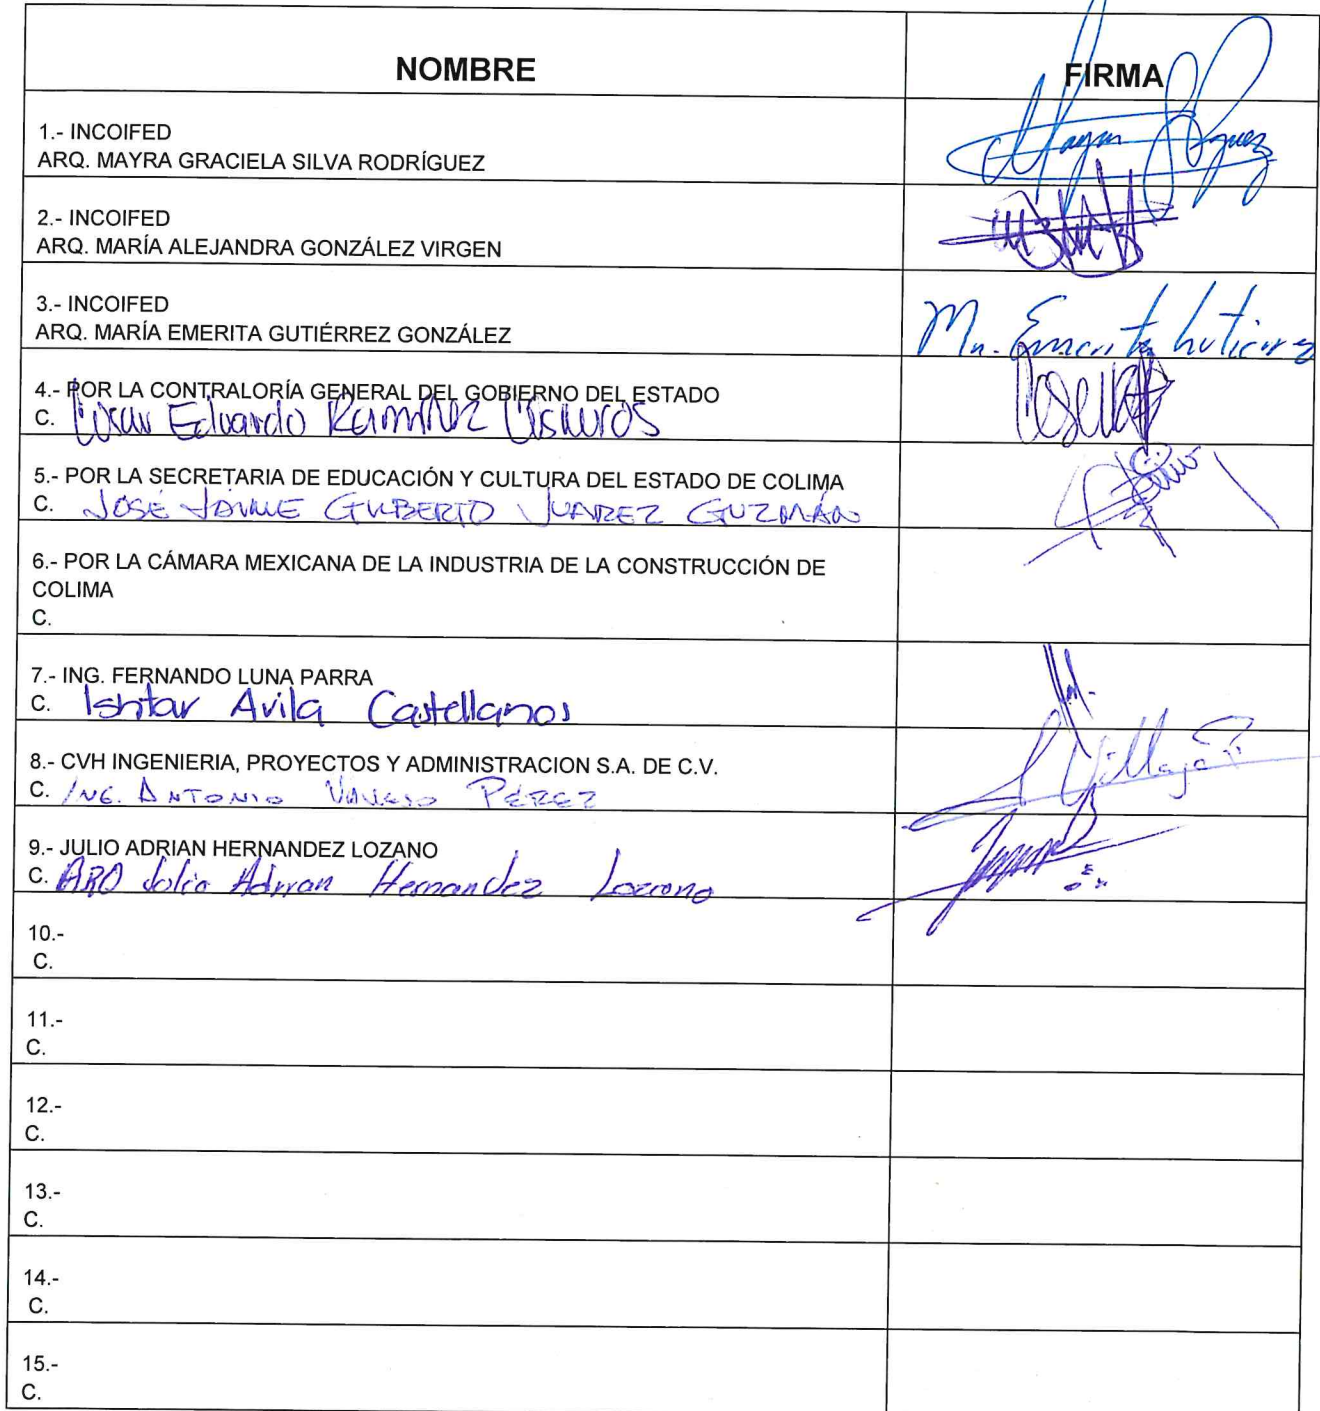 NOMBRE FIRMA
1.- INCOIFED
ARQ. MAYRA GRACIELA SILVA RODRÍGUEZ
2.- INCOIFED
ARQ. MARÍA ALEJANDRA GONZÁLEZ VIRGEN
3.- INCOIFED
ARQ. MARÍA EMERITA GUTIÉRREZ GONZÁLEZ
Ma. Emerita Gutierrez
4.- POR LA CONTRALORÍA GENERAL DEL GOBIERNO DEL ESTADO
C. César Eduardo Ramírez Cisneros
5.- POR LA SECRETARIA DE EDUCACIÓN Y CULTURA DEL ESTADO DE COLIMA
C. JOSÉ JAIME GILBERTO JUAREZ GUZMÁN
6.- POR LA CÁMARA MEXICANA DE LA INDUSTRIA DE LA CONSTRUCCIÓN DE
COLIMA
C.
7.- ING. FERNANDO LUNA PARRA
C. Ishtar Avila Castellanos
8.- CVH INGENIERIA, PROYECTOS Y ADMINISTRACION S.A. DE C.V.
C. ING. ANTONIO PÉREZ
9.- JULIO ADRIAN HERNANDEZ LOZANO
C. ARQ Julio Adrian Hernandez Lozano
10.-
C.
11.-
C.
12.-
C.
13.-
C.
14.-
C.
15.-
C.